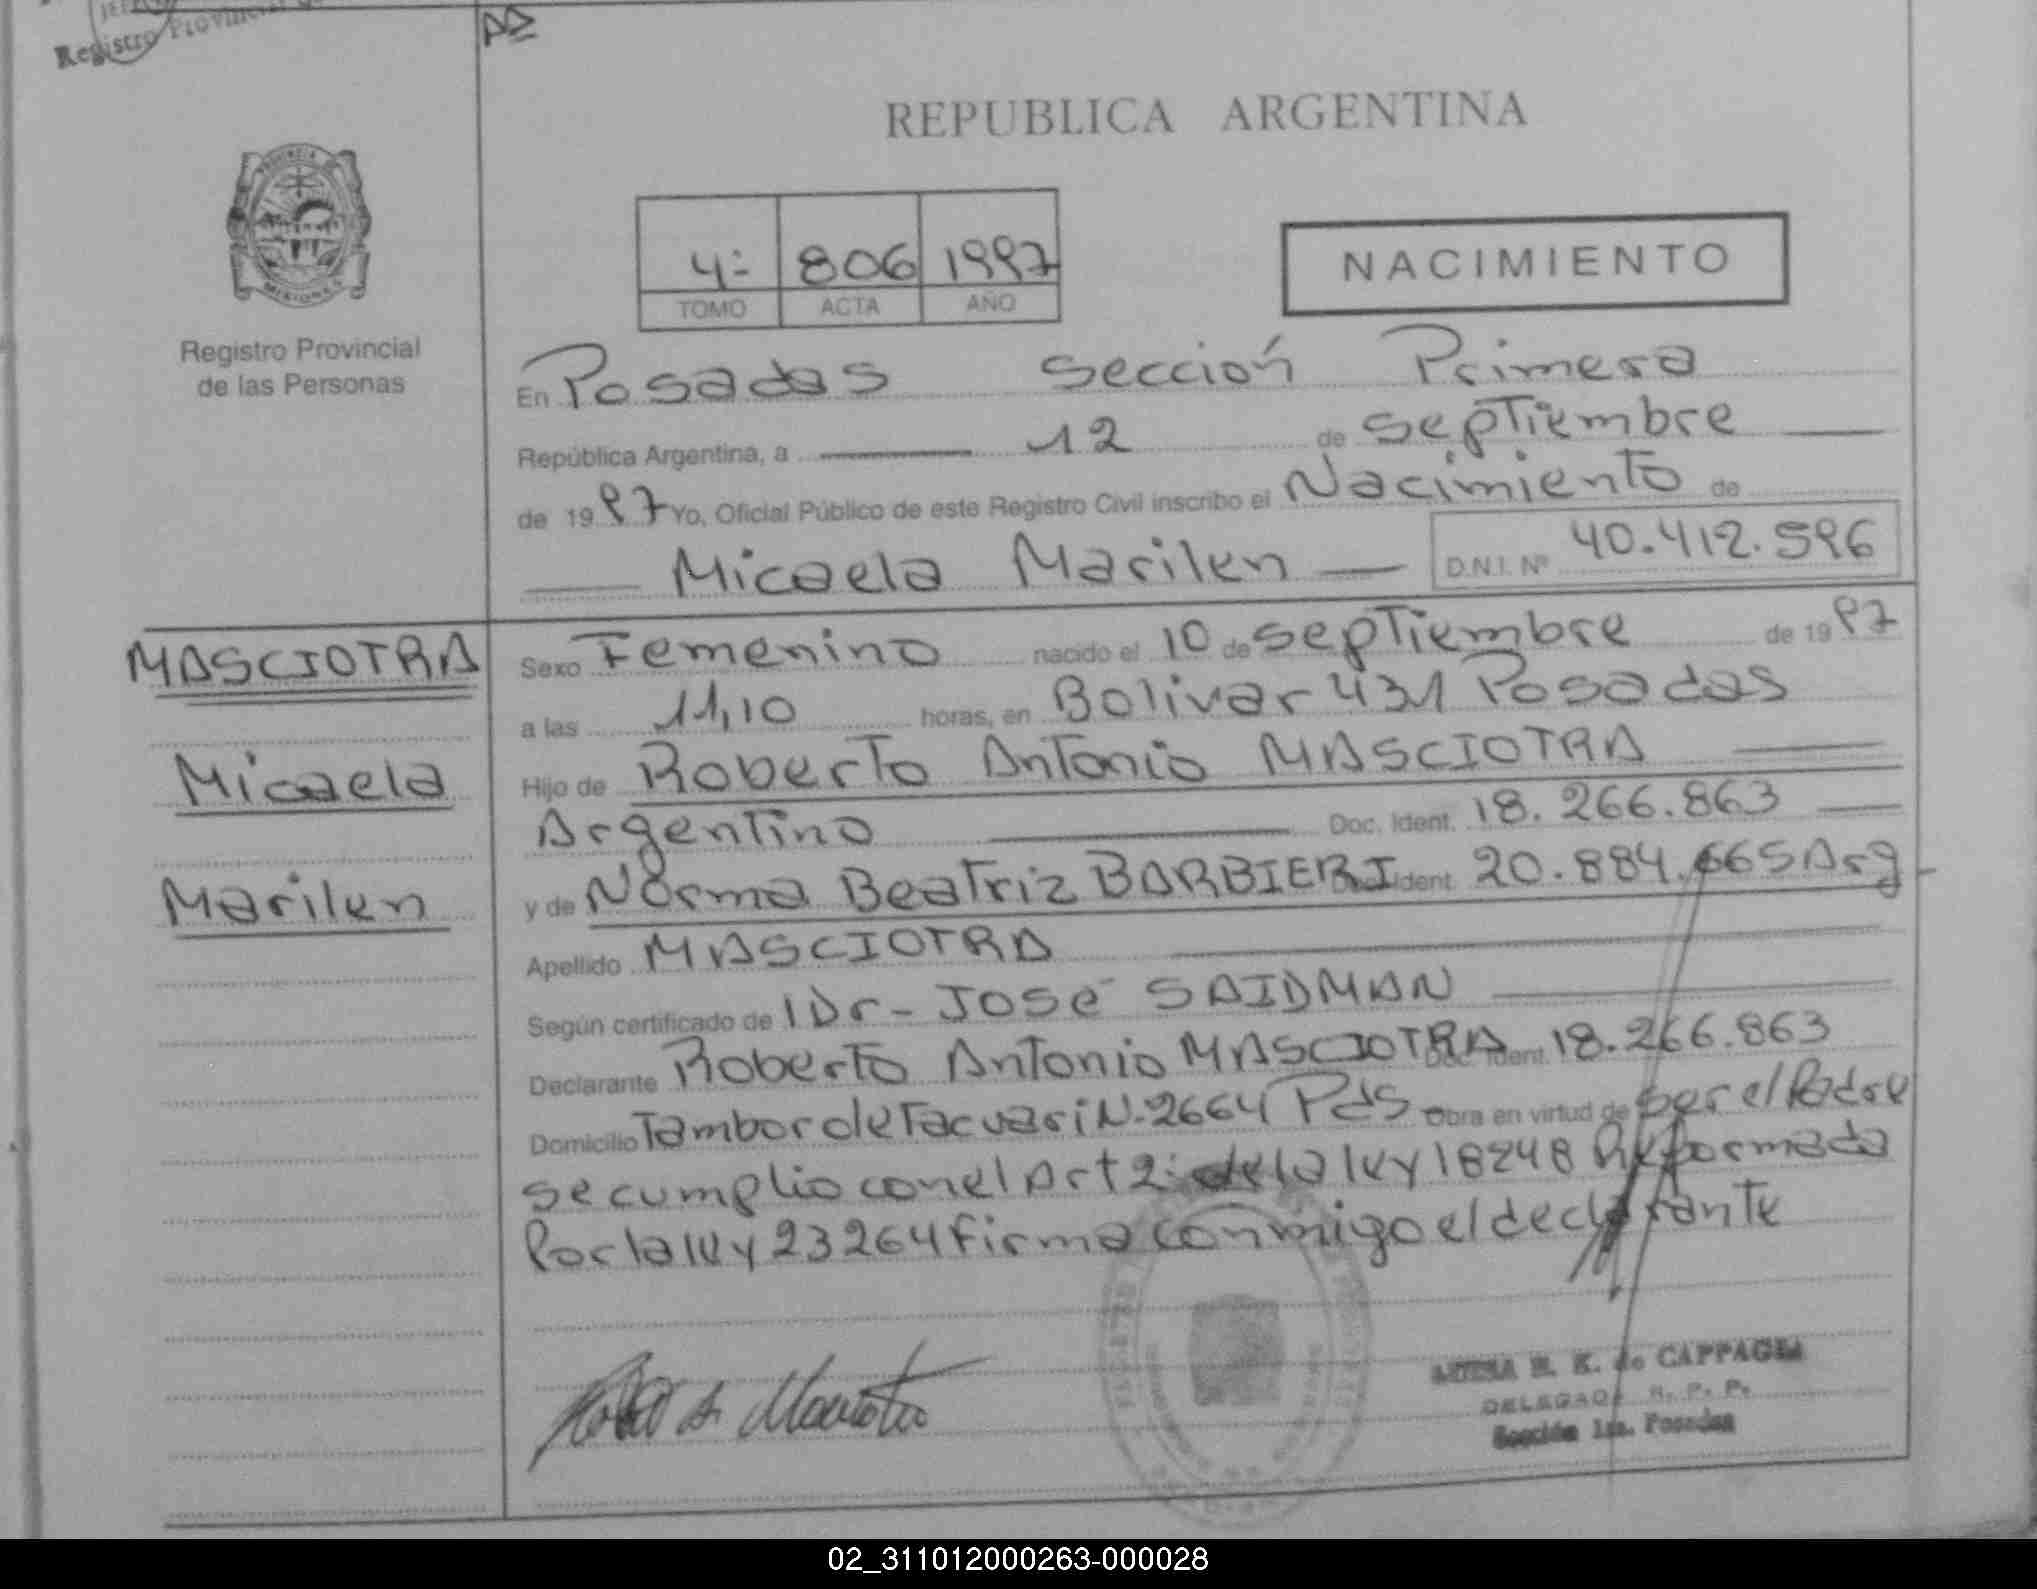 Registro Provincial
REPUBLICA ARGENTINA
4º 806 1997
TOMO ACTA AÑO
NACIMIENTO
PROVINCIA DE MISIONES
Registro Provincial
de las Personas
En Posadas Sección Primera
República Argentina, a 12 de septiembre
de 1997 Yo, Oficial Público de este Registro Civil inscribo el Nacimiento de
Micaela Marilen D.N.I. Nº 40.412.596
MASCIOTRA
Micaela
Marilen
Sexo Femenino nacido el 10 de septiembre de 1997
a las 11,10 horas, en Bolivar 431 Posadas
Hijo de Roberto Antonio MASCIOTRA
Argentino Doc. Ident. 18.266.863
y de Norma Beatriz BARBIERI Doc. Ident. 20.884.665 Arg
Apellido MASCIOTRA
Según certificado de Dr - José SAIDMAN
Declarante Roberto Antonio MASCIOTRA Doc. Ident. 18.266.863
Domicilio Tambor de Tacuari N. 2664 Pds. Obra en virtud de ser el Padre
se cumplio con el Art 2º de la ley 18248 Reformada
Por la ley 23264 firma conmigo el declarante
de CAPPAGLI
DELEGADA R. P. P.
Sección 1ra. Posadas
02_311012000263-000028